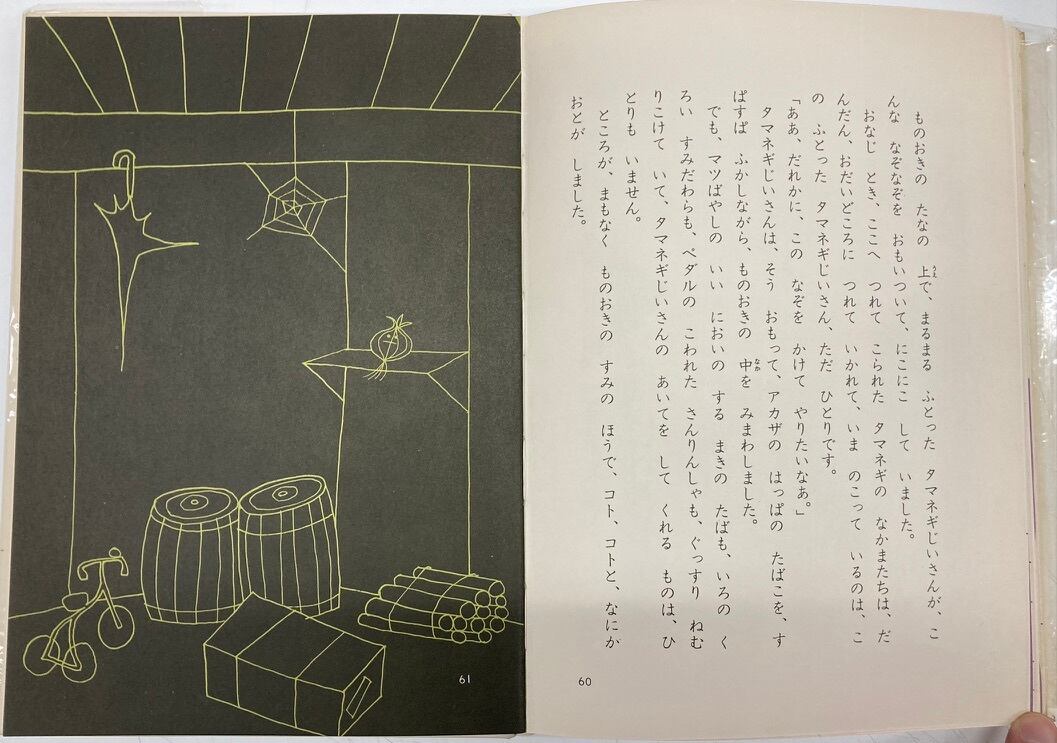 ものおきの たなの 上で、まるまる ふとった タマネギじいさんが、こ
んな なぞなぞを おもいついて、にこにこ して いました。
おなじ とき、ここへ つれて こられた タマネギの なかまたちは、だ
んだん、おだいどころに つれて いかれて、いま のこって いるのは、こ
の ふとった タマネギじいさん、ただ ひとりです。
「ああ、だれかに、この なぞを かけて やりたいなあ。」
タマネギじいさんは、そう おもって、アカザの はっぱの たばこを、す
ぱすぱ ふかしながら、ものおきの 中を みまわしました。
でも、マツばやしの いい においの する まきの たばも、いろの く
ろい すみだわらも、ペダルの こわれた さんりんしゃも、ぐっすり ねむ
りこけて いて、タマネギじいさんの あいてを して くれる ものは、ひ
とりも いません。
ところが、まもなく ものおきの すみの ほうで、コト、コトと、なにか
おとが しました。
うえ
なか
60
61